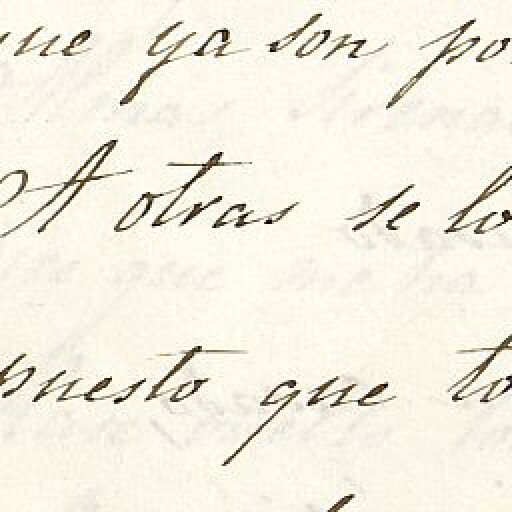 que ya son po
A otras se lo
puesto que to